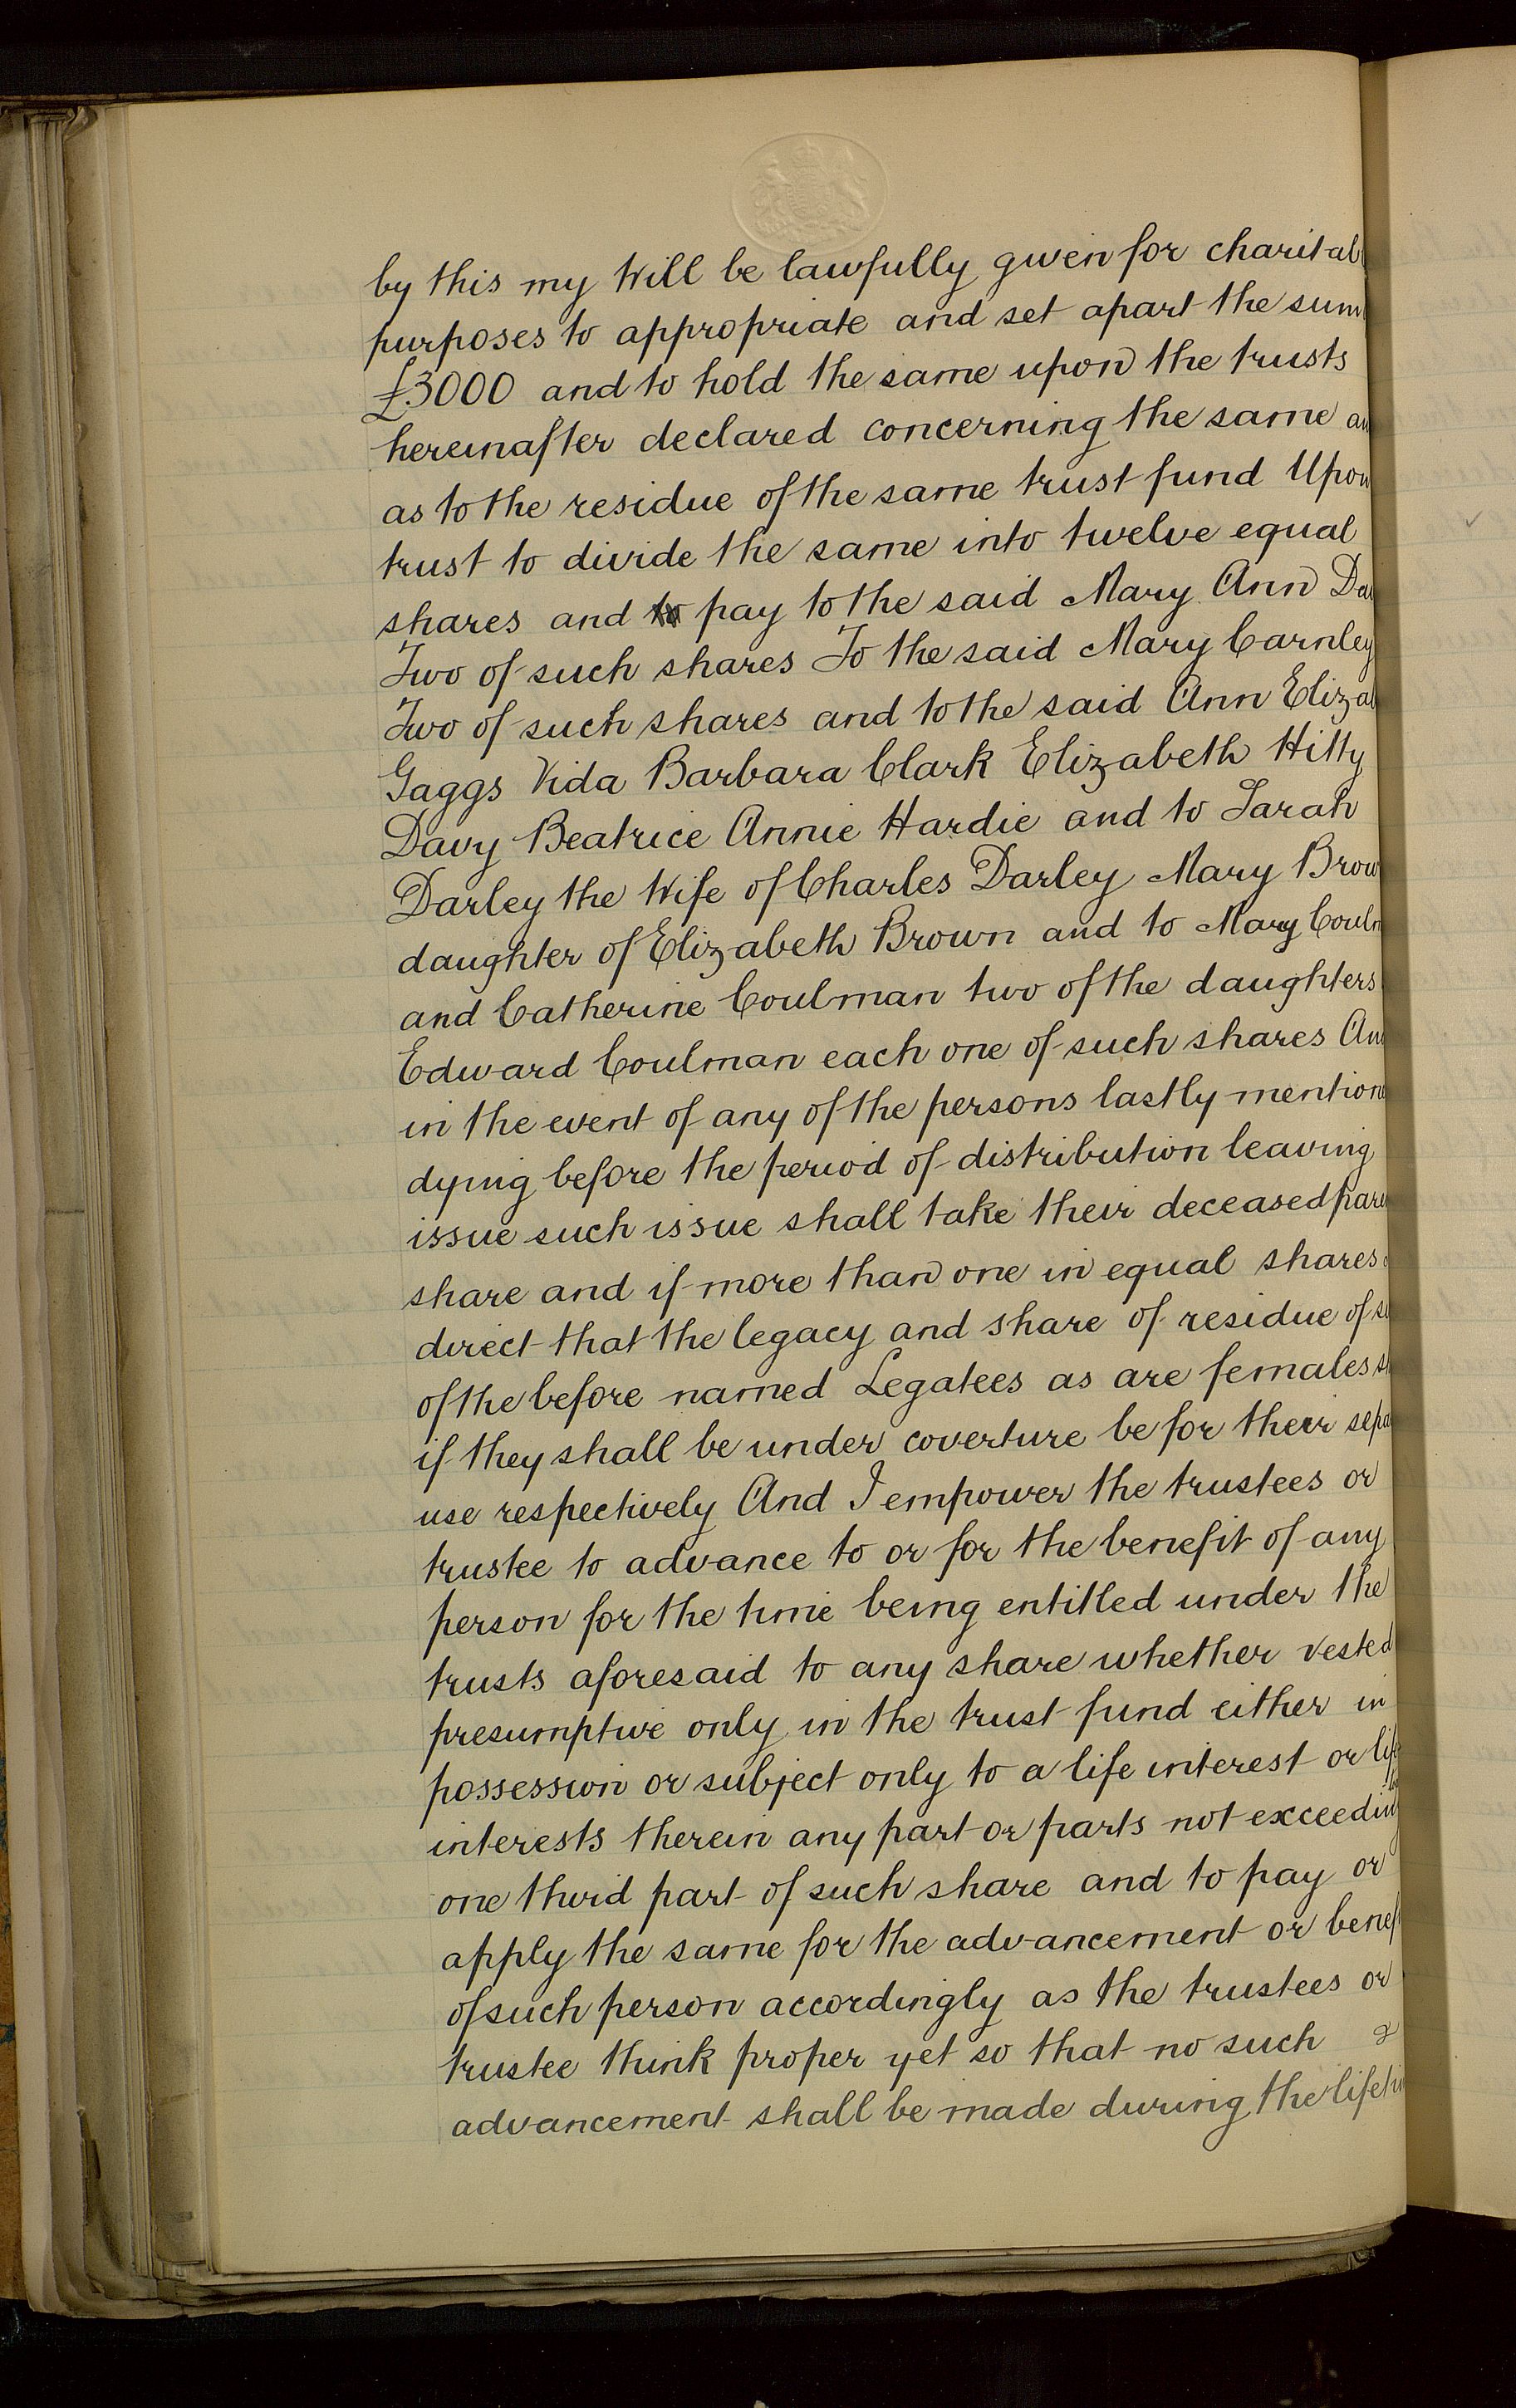 by this my Will be lawfully given for charitab
purposes to appropriate and set apart the sum
£3000 and to hold the same upon the trusts
hereinafter declared concerning the same an
as to the residue of the same trust fund Upon
trust to divide the same into twelve equal
shares and to pay to the said Mary Ann Da
Two of such shares To the said Mary Carnley
Two of such shares and to the said Ann Elizab
Gaggs Vida Barbara Clark Elizabeth Hilly
Davy Beatrice Annie Hardie and to Sarah
Darley the Wife of Charles Darley Mary Brow
daughter of Elizabeth Brown and to Mary Coulm
and Catherine Coulman two of the daughters
Edward Coulman each one of such shares An
in the event of any of the persons lastly mention
dying before the period of distribution leaving
issue such issue shall take their deceased pare
share and if more than one in equal shares
direct that the legacy and share of residue of su
of the before named Legatees as are females sh
if they shall be under coverture be for their sepa
use respectively And I empower the trustees or
trustee to advance to or for the benefit of any
person for the time being entitled under the
trusts aforesaid to any share whether vested
presumptive only in the trust fund either in
possession or subject only to a life interest or life
interests therein any part or parts not exceeding
one third part of such share and to pay or
apply the same for the advancement or benef
of such person accordingly as the trustees or
trustee think proper yet so that no such
advancement shall be made during the lifetim